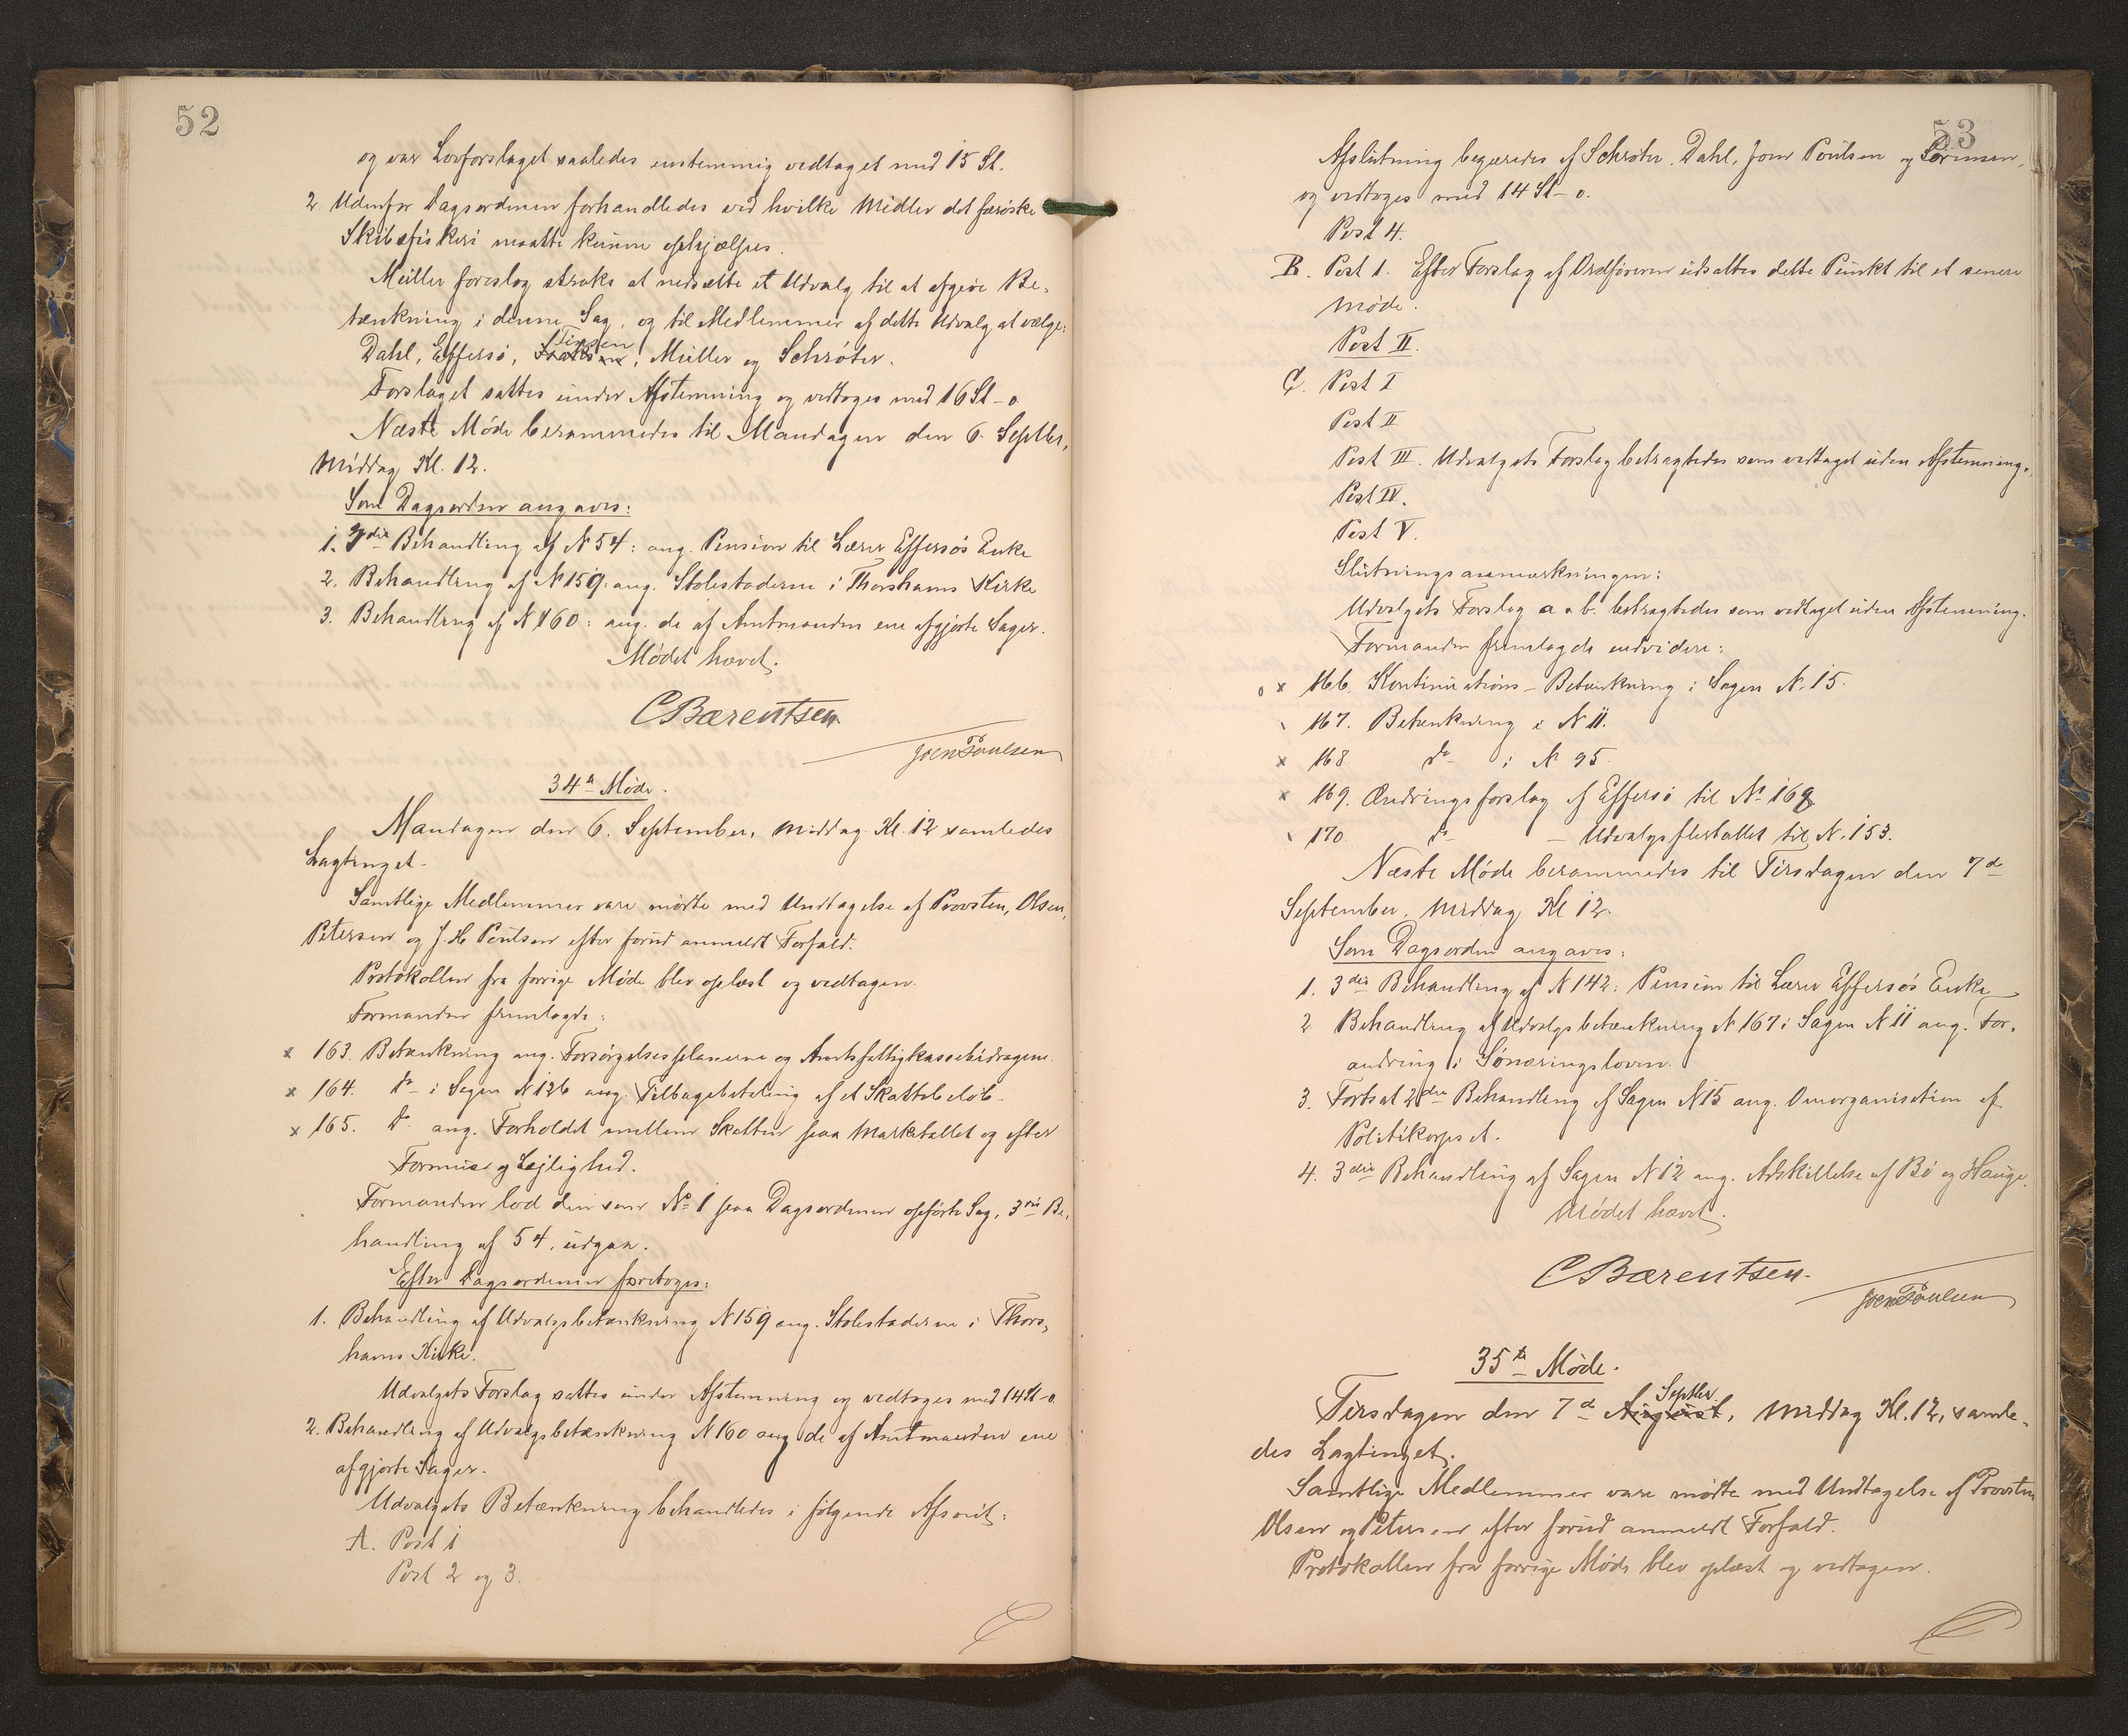 52
og var Lovforslaget saaledes enstemmig vedtaget med 15 St.
2. Udenfor Dagsordenen forhandledes ved hvilke Midler det færøske
Skibsfiskeri maatte kunne ophjælpes.
Müller foreslog straks at nedsætte et Udvalg til at afgive Be-
tænkning i denne Sag, og til Medlemmer af dette Udvalg at vælge:
Dahl, Effersö, Müller og Schröter.
Forslaget sattes under Afstemning og vedtoges med 16 St - o
Næste Møde berammedes til Mandagen den 6. Septbr,
Middag Kl. 12.
Som Dagsorden angaves:
1. 3die Behandling af N 54: ang. Pension til Lærer Effersös Enke
2. Behandling af N 159: ang. Stolestaderne i Thorshavns Kirke
3. Behandling af N 160: ang. de af Amtmanden ene afgjorte Sager.
Mødet hævet.
C Bærentsen.
Joen Poulsen
34te Møde.
Mandagen den 6. September, Middag Kl. 12 samledes
Lagtinget.
Samtlige Medlemmer vare mødte med Undtagelse af Provsten, Olsen,
Petersen og J. H. Poulsen efter forud anmeldt Forfald.
Protokollen fra forrige Møde blev oplæst og vedtagen.
Formanden fremlagde:
x 163. Betænkning ang. Forsørgelsesplanerne og Amtsfattigkassebidragene.
x 164. do i Sagen N 126 ang. Tilbagebetaling af et Skattebeløb.
x 165. do ang. Forholdet mellem Skatten paa Marketallet og efter
Formue og Lejlighed.
Formanden lod den som No 1 paa Dagsordenen opførte Sag, 3die Be-
handling af 54, udgaa.
Efter Dagsordenen foretoges:
1. Behandling af Udvalgsbetænkning N 159 ang. Stolestaderne i Thors-
havns Kirke.
Udvalgets Forslag sattes under Afstemning og vedtoges med 14 St - o
2. Behandling af Udvalgsbetænkning N 160 ang de af Amtmanden ene
afgjorte Sager.
Udvalgets Betænkning behandledes i følgende Afsnit:
A. Post 1
Post 2 og 3.
53
Afslutning begæredes af Schröter, Dahl, Joen Poulsen og
og vedtoges med 14 St - o.
Post 4.
B. Post 1. Efter Forslag af Ordføreren udsattes dette Punkt til et senere
Møde.
Post II.
C. Post I
Post II
Post III. Udvalgets Forslag betragtedes som vedtaget uden Afstemning.
Post IV.
Post V.
Slutningsanmærkningen:
Udvalgets Forslag a & b. betragtedes som vedtaget uden Afstemning.
Formanden fremlagde endvidere:
o x 166. Kontinuations-Betænkning i Sagen N. 15.
167. Betænkning i N 11.
x 168 do i N 95.
x 169. Ændringsforslag af Effersö til No
170 do - Udvalgsflertallet til N. 153.
Næste Møde berammedes til Tirsdagen den 7d
September, Middag Kl 12.
Som Dagsorden angaves:
1. 3die Behandling af N 142: Pension til Lærer Effersös Enke
2 Behandling af Udvalgsbetænkning N 167 i Sagen N 11 ang. For-
andring i Sönæringsloven.
3. Fortsat 2den Behandling af Sagen N 15 ang. Omorganisation af
Politikorpset.
4. 3die Behandling af Sagen N 12 ang. Adskillelse af Bö og Hauge.
Mødet hævet.
C Bærentsen.
Joen Poulsen
35te Møde.
Tirsdagen den 7d August Septbr, Middag Kl. 12, samle-
des Lagtinget.
Samtlige Medlemmer vare mødte med Undtagelse af Provsten
Olsen og Petersen efter forud anmeldt Forfald.
Protokollen fra forrige Møde blev oplæst og vedtagen.